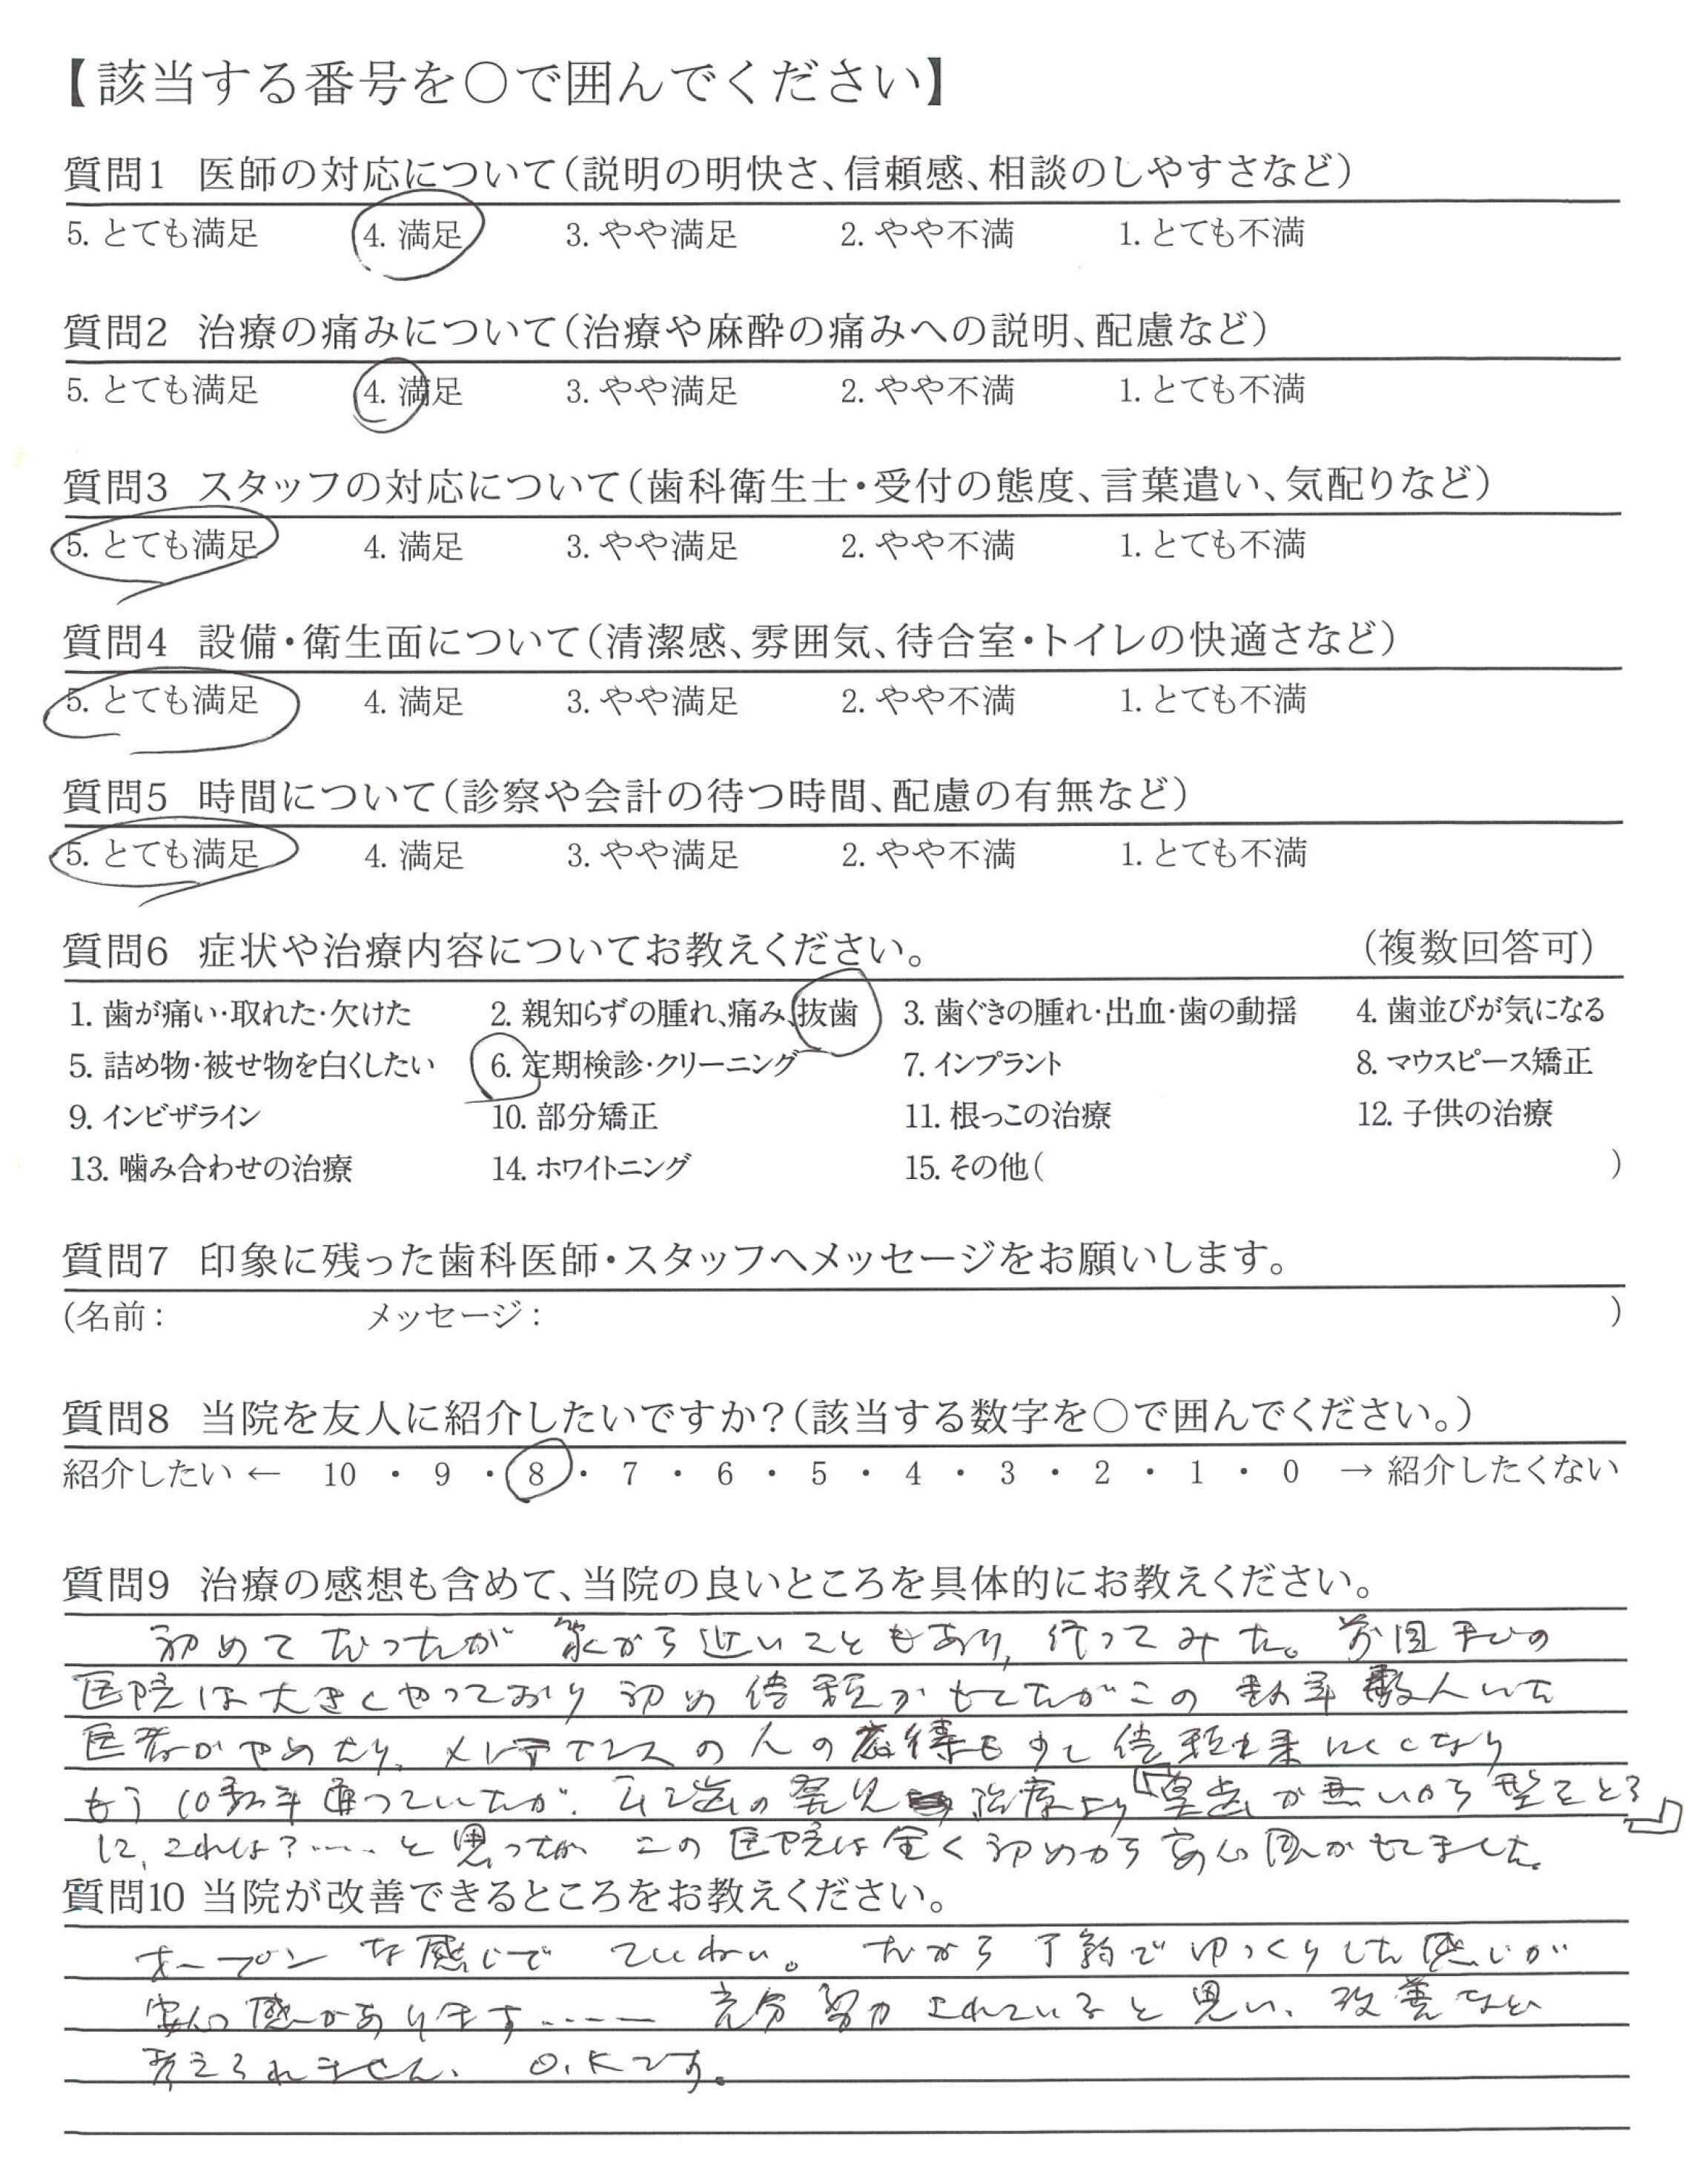 【該当する番号を○で囲んでください】
質問1 医師の対応について（説明の明快さ、信頼感、相談のしやすさなど）
5. とても満足 4. 満足 3. やや満足 2. やや不満 1. とても不満
質問2 治療の痛みについて（治療や麻酔の痛みへの説明、配慮など）
5. とても満足 4. 満足 3. やや満足 2. やや不満 1. とても不満
質問3 スタッフの対応について（歯科衛生士・受付の態度、言葉遣い、気配りなど）
5. とても満足 4. 満足 3. やや満足 2. やや不満 1. とても不満
質問4 設備・衛生面について（清潔感、雰囲気、待合室・トイレの快適さなど）
5. とても満足 4. 満足 3. やや満足 2. やや不満 1. とても不満
質問5 時間について（診察や会計の待つ時間、配慮の有無など）
5. とても満足 4. 満足 3. やや満足 2. やや不満 1. とても不満
質問6 症状や治療内容についてお教えください。 （複数回答可）
1. 歯が痛い・取れた・欠けた 2. 親知らずの腫れ、痛み、抜歯 3. 歯ぐきの腫れ・出血・歯の動揺 4. 歯並びが気になる
5. 詰め物・被せ物を白くしたい 6. 定期検診・クリーニング 7. インプラント 8. マウスピース矯正
9. インビザライン 10. 部分矯正 11. 根っこの治療 12. 子供の治療
13. 噛み合わせの治療 14. ホワイトニング 15. その他（ ）
質問7 印象に残った歯科医師・スタッフへメッセージをお願いします。
（名前： メッセージ： ）
質問8 当院を友人に紹介したいですか？（該当する数字を○で囲んでください。）
紹介したい ← 10 ・ 9 ・ 8 ・ 7 ・ 6 ・ 5 ・ 4 ・ 3 ・ 2 ・ 1 ・ 0 → 紹介したくない
質問9 治療の感想も含めて、当院の良いところを具体的にお教えください。
初めてだったが 家から近いこともあり, 行ってみた。前回までの
医院は大きくやっており 初め 信頼がもてたがこの 数年 数人いた
医者がやめたり、メンテナンスの人の応待も少し信頼出来にくくなり
もう10数年通っていたが、ムシ歯の発見 治療より「奥歯が無いから型をとる」
に、これは?……と思ったが この医院は全く初めから安心感がもてました。
質問10 当院が改善できるところをお教えください。
オープンな感じで ていねい。だから予約でゆっくりした感じが
安心感があります…… 充分努力されていると思い、改善など
考えられません、O.Kです。